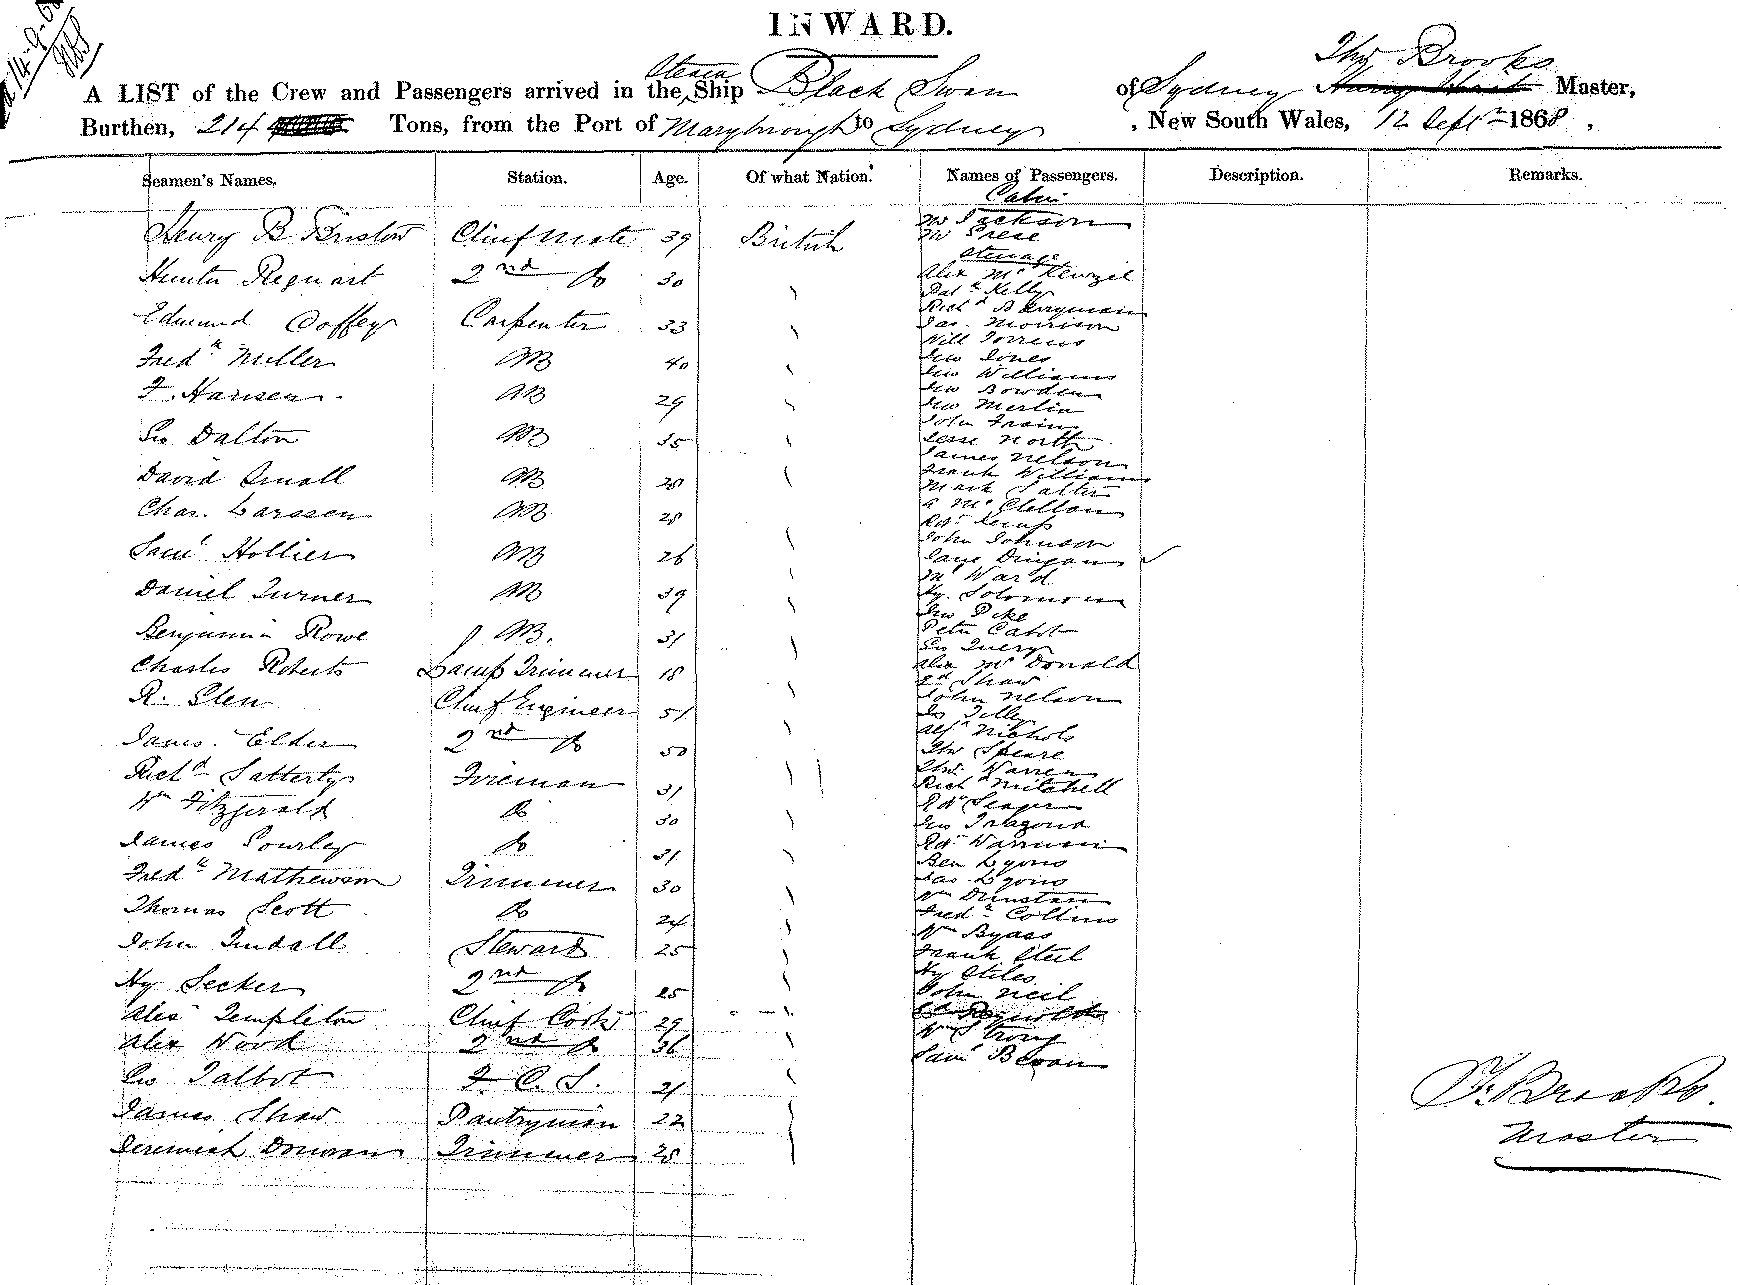 14-9-68
INWARD.
Steam Thos Brooks
A LIST of the Crew and Passengers arrived in the Ship Black Swan of Sydney Master,
Burthen, 214 Tons, from the Port of Maryborough to Sydney, New South Wales, 12 Sept 1868.
Seamen's Names. Station. Age. Of what Nation. Names of Passengers. Description. Remarks.
Henry B Bristow Chief Mate 39 British
Hunter 2nd Do 30
Edmund Coffey Carpenter 33
Fredk Miller AB 40
F. Hansen AB 29
Geo Dalton AB 35
David Small AB 28
Chas. Larssen AB 28
Saml Hollier AB 26
Daniel Turner AB 39
Benjamin Rowe AB. 31
Charles Roberts Lamp Trimmer 18
R. Glen Chief Engineer 51
James Elder 2nd Do 50
Richd Fireman 31
Wm Fitzgerald Do 30
James Gourley Do 31
Fredk Mathewson Trimmer 30
Thomas Scott Do 24
John Tindall Steward 25
Hy Secker 2nd Do 25
Alex Templeton Chief Cook 29
Alex Wood 2nd Do 36
Geo Talbot F. C. S. 21
James Shaw Pantryman 22
Jeremiah Donovan Trimmer 28
Cabin
Mr Jackson
Mr
Steerage
Alex McKenzie
Patk Kelly
Richd Berryman
Jas. Morrison
Will Torrens
Jno Jones
Jno Williams
Jno Bowden
Jno Merlin
John Train
Jesse North
James Nelson
Frank Williams
Mark Salter
A McClellan
Robt Kemp
John Johnson
Dingam
M Ward
Hy. Solomon
Jno Pike
Peter Cahot
Geo Query
Alex McDonald
Ed Shaw
John Nelson
Geo Tilly
Alfd Nichols
Thos Speare
Thos Warren
Richd Mitchell
Robt Seager
Jno
Robt
Ben Lyons
Jas. Lyons
Wm Dunstan
Fredk Collins
Wm Byass
Frank Steel
Hy Stiles
John Neil
Wm Strong
Saml Bevan
T. Brooks
Master